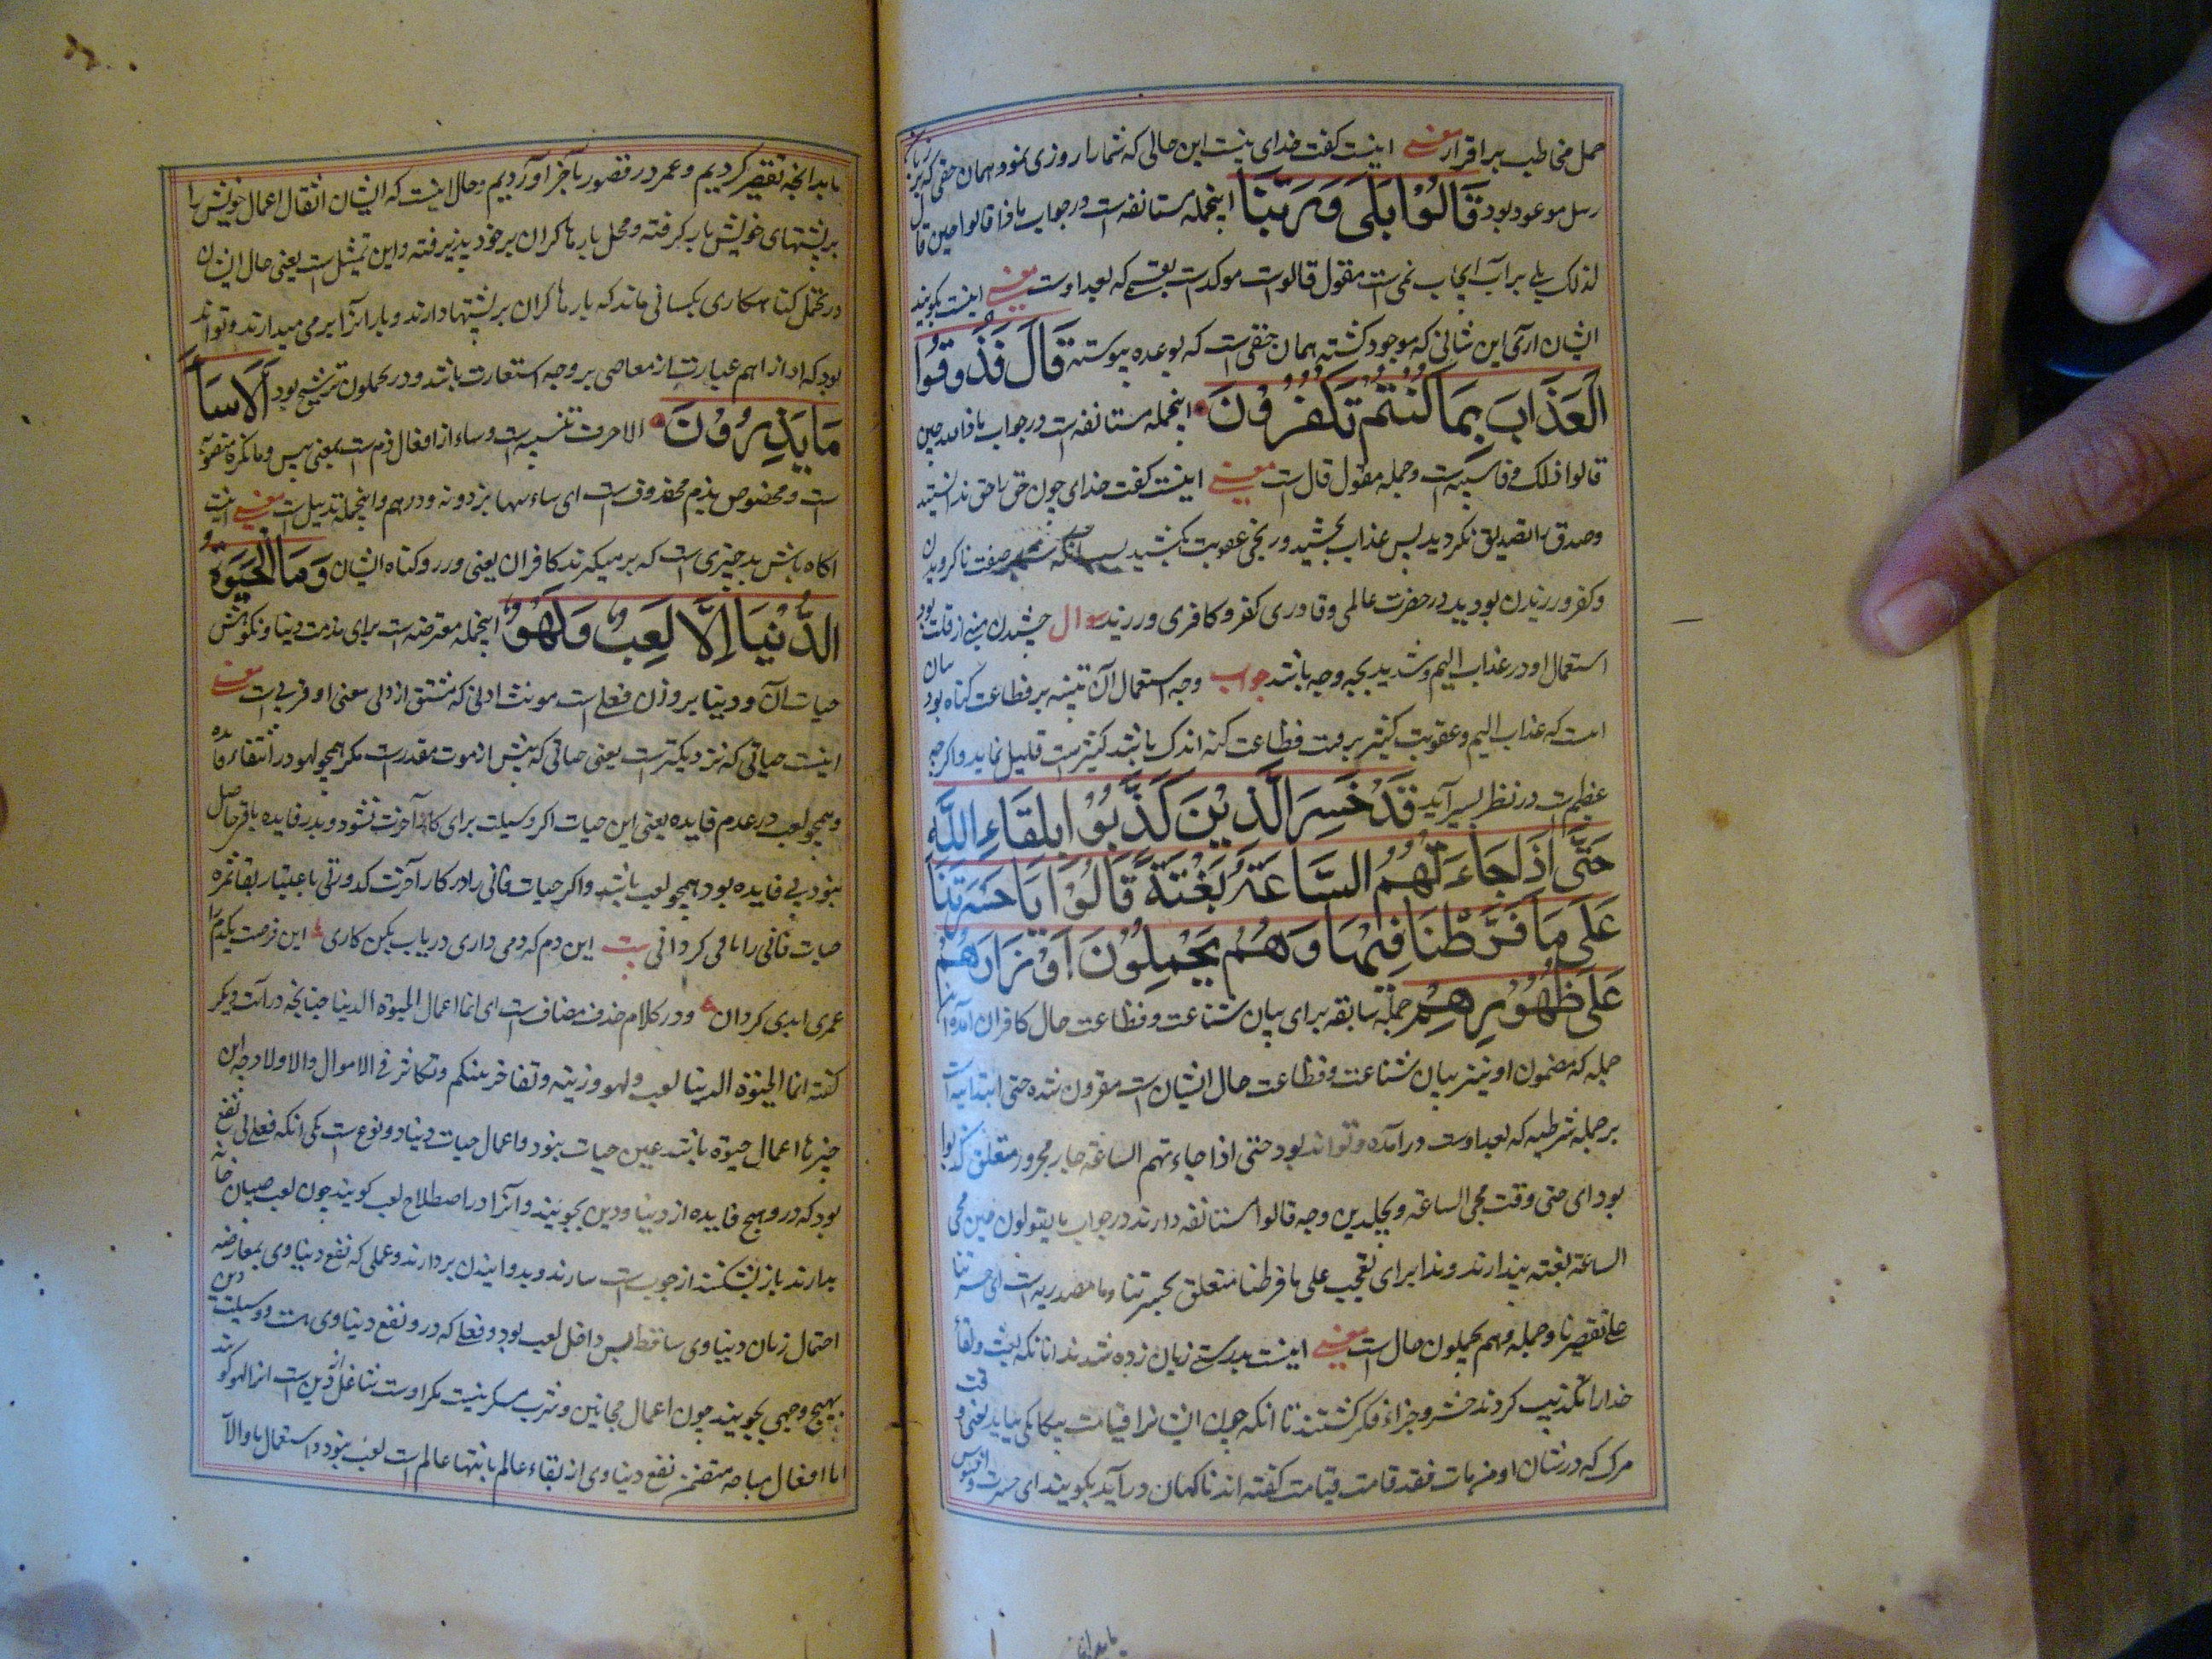 حمل مخاطب بر اقرار معنے اینست کفت خدای نیست این حالی که شما را روزی نمود همان حقی که بر زبان
رسل موعود بود قَالُوْا بَلَى وَرَبِّنَا اینجمله مستانفه است در جواب ماذا قالوا حین قال
لذلک بلی برای ایجاب نفی است مقول قالو است موکد است بقسمی که بعد اوست معنے اینست بکویند
ایشان آری این شانی که موجود کشته همان حقی است که بوعده پیوسته قَالَ فَذُوقُوا
الْعَذَابَ بِمَا كُنْتُمْ تَكْفُرُوْنَ اینجمله مستانفه است در جواب ماذا قال حین
قالوا ذلک و فا سببیه است و جمله مقول قال است معنے اینست کفت خدای چون حق را حق ندانستید
و صدق را تصدیق نکردید پس عذاب بچشید و رنجی عقوبت بکشید بسبب آنکه صفت ناکرویدن
و کفر ورزیدن بودید در حضرت عالمی و قادری کفر و کافری ورزیدید سوال چشیدن مبنی از قلت بود
استعمال او در عذاب الیم و شدید بچه وجه باشد جواب وجه استعمال آن تنبیه بر فظاعت کناه بود
است که عذاب الیم و عقوبت کثیر برفت فظاعت کنه اندک باشد کثیرست قلیل نماید و اکرچه
عظیم است در نظر یسیر آید قَدْ خَسِرَ الَّذِيْنَ كَذَّبُوْا بِلِقَاءِ اللَّهِ
حَتَّى اِذَا جَاءَتْهُمُ السَّاعَةُ بَغْتَةً قَالُوْا يَا حَسْرَتَنَا
عَلَى مَا فَرَّطْنَا فِيْهَا وَهُمْ يَحْمِلُوْنَ اَوْزَارَهُمْ
عَلَى ظُهُوْرِهِمْ جمله سابقه برای بیان شناعت و فظاعت حال کافران آمده این
جمله که مضمون او نیز بیان شناعت و فظاعت حال ایشان است مقرون شده حتی ابتدائیه است
بر جمله شرطیه که بعد اوست در آمده و تواند بود حتی اذا جاءتهم الساعة جار مجرور متعلق کذبوا
بود ای حتی وقت مجی الساعة و بجلدین وجه قالوا مستانفه دارند در جواب ما یقولون حین مجی
الساعة بغتة پندارند و ندا برای تعجب علی ما فرطنا متعلق بحسرتنا و ما مصدریه است ای حسرتنا
علی تقصیرنا و جمله و هم یحملون حال است معنے اینست بدرستی زیان زده شدند آنانکه بعث و لقاء
خدا را تکذیب کردند حشر و جزا را منکر کشتند تا انکه چون ایشانرا قیامت بیکایکی بیاید یعنی وقت
مرک که در شان او من مات فقد قامت قیامته کفته اند ناکهان در آید بکویند ای حسرت و افسوس
ما بدانچه تقصیر کردیم و عمر در قصور بآخر آوردیم و حال اینست که ایشان اثقال اعمال خویش را
بر پشتهای خویش بار کرفته و محل بارها کران بر خود پذیرفته و این تمثیل است یعنی حال ایشان
در تحمل کناهکاری بکسانی ماند که بارها کران بر پشتها دارند و بار آنرا بر می میدارند و تواند
بود که اوزارهم عبارت از معاصی بر وجه استعارت باشد و در یحملون ترشیح بود اَلَا سَاءَ
مَا يَذِرُوْنَ الا حرف تنبیه است و ساء از افعال ذم است بمعنی بیس و ما نکره منصوب
است و مخصوص بذم محذوف است ای ساء سهما یزرونه وزرهم و اینجمله تذییل است معنے اینست
اکاه باش بد چیزی است که بر میکیرند کافران یعنی وزر و کناه ایشان وَمَا الْحَيٰوةُ
الدُّنْيَا اِلَّا لَعِبٌ وَلَهْوٌ اینجمله معترضه است برای مذمت دنیا و نکوهش
حیات آن و دنیا بر وزن فعلی است مونث ادنی که مشتق از دنی معنی او قریب است معنے
اینست حیاتی که نزدیکتر است یعنی حیاتی که پیش از موت مقدر است مکر همچو لهو در انتفاء فایده
و همچو لعب در عدم فایده یعنی این حیات اکر وسیلت برای کار آخرت نشود و بدر فایده باقی حاصل
نبود بی فایده بود همچو لعب باشد و اکر حیات فانی را در کار آخرت کدورتی باعتبار بقا ثمره
حیات فانی را باقی کردانی بیت این دم که دمی داری دریاب بکن کاری ع این فرصت یکدم را
عمری ابدی کردان و در کلام حذف مضاف است ای انما اعمال الحیوة الدنیا چنانچه در آیت دیکر
کفته انما الحیوة الدنیا لعب و لهو و زینة و تفاخر بینکم و تکاثر فی الاموال والاولاد چه این
چیزها اعمال حیوة باشد عین حیات نبود و اعمال حیات دنیا دو نوع است یکی انکه فعلی بی نفع
بود که در و هیچ فایده از دنیا و دین نجویند و آنرا در اصطلاح لعب کویند چون لعب صبیان خانه
بیارند باز بشکنند از چوب است سازند و بدوانیدن بردارند و عملی که نفع دنیاوی بمعارضه
احتمال زیان دنیاوی ساقط پس داخل لعب بود و فعلی که در و نفع دنیاوی است و وسیلت دین
بهیچ وجهی نجویند چون اعمال مجانین و شرب مسکر نیست مکر اوست شاغل از دین است انرا لهو کویند
اما افعال مباحه متضمن نفع دنیاوی از بقاء عالم یا بنتها عالم است لعب نبود و استعمال ما و الا
ما بدانچه